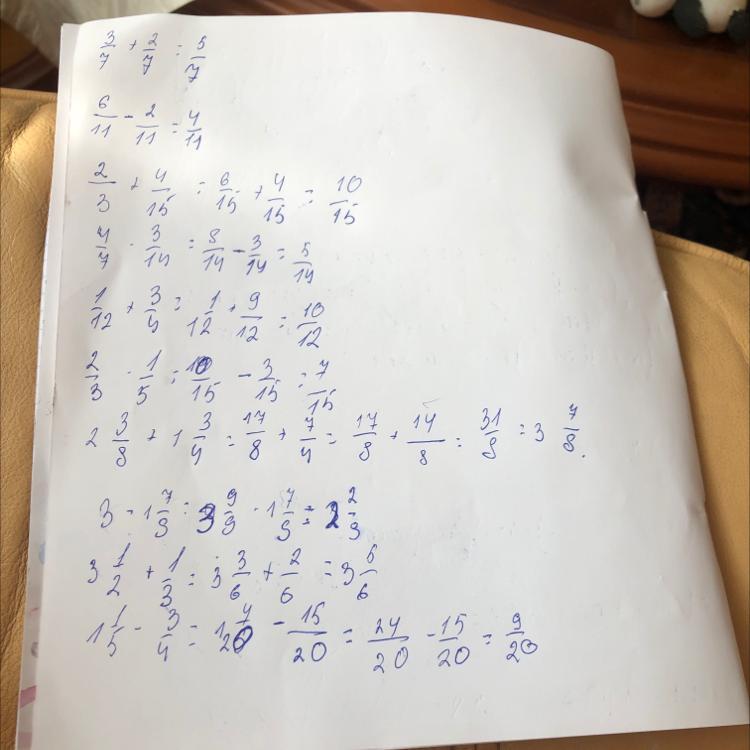 3/7 + 2/7 = 5/7
6/11 - 2/11 = 4/11
2/3 + 4/15 = 6/15 + 4/15 = 10/15
4/7 - 3/14 = 8/14 - 3/14 = 5/14
1/12 + 3/4 = 1/12 + 9/12 = 10/12
2/3 - 1/5 = 10/15 - 3/15 = 7/15
2 3/8 + 1 3/4 = 17/8 + 7/4 = 17/8 + 14/8 = 31/8 = 3 7/8.
3 - 1 7/9 = 9/9 - 1 7/9 = 2/9
3 1/2 + 1/3 = 3 3/6 + 2/6 = 3 5/6
1 1/5 - 3/4 = 1 4/20 - 15/20 = 24/20 - 15/20 = 9/20